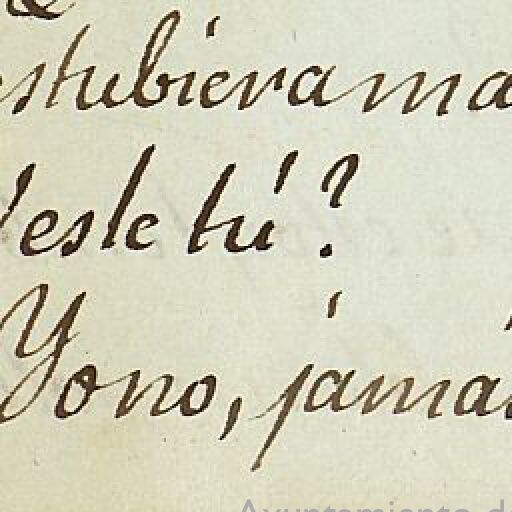 estubiera ma
éste tú?
Yo no, jamás
Ayuntamiento d